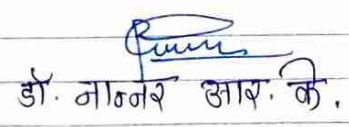 डॉ. नान्नर आर. के.